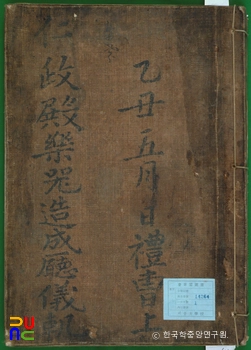 乙丑五月日禮曹上
仁政殿樂器造成廳儀軌
© 한국학중앙연구원